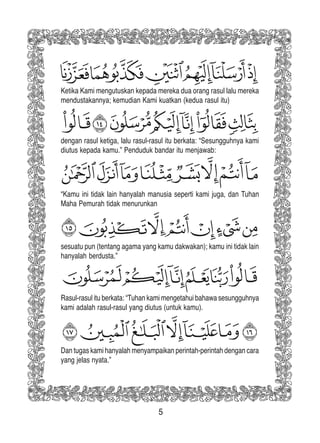 إِذْ أَرْسَلْنَآ إِلَيْهِمُ ٱثْنَيْنِ فَكَذَّبُوهُمَا فَعَزَّزْنَا
Ketika Kami mengutuskan kepada mereka dua orang rasul lalu mereka
mendustakannya; kemudian Kami kuatkan (kedua rasul itu)
بِثَالِثٍ فَقَالُوٓا۟ إِنَّآ إِلَيْكُم مُّرْسَلُونَ ١٤ قَالُوا۟
dengan rasul ketiga, lalu rasul-rasul itu berkata: “Sesungguhnya kami
diutus kepada kamu.” Penduduk bandar itu menjawab:
مَآ أَنتُمْ إِلَّا بَشَرٌ مِّثْلُنَا وَمَآ أَنزَلَ ٱلرَّحْمَـٰنُ
“Kamu ini tidak lain hanyalah manusia seperti kami juga, dan Tuhan
Maha Pemurah tidak menurunkan
مِن شَىْءٍ إِنْ أَنتُمْ إِلَّا تَكْذِبُونَ ١٥
sesuatu pun (tentang agama yang kamu dakwakan); kamu ini tidak lain
hanyalah berdusta.”
قَالُوا۟ رَبُّنَا يَعْلَمُ إِنَّآ إِلَيْكُمْ لَمُرْسَلُونَ
Rasul-rasul itu berkata: “Tuhan kami mengetahui bahawa sesungguhnya
kami adalah rasul-rasul yang diutus (untuk kamu).
١٦ وَمَا عَلَيْنَآ إِلَّا ٱلْبَلَـٰغُ ٱلْمُبِينُ ١٧
Dan tugas kami hanyalah menyampaikan perintah-perintah dengan cara
yang jelas nyata.”
5